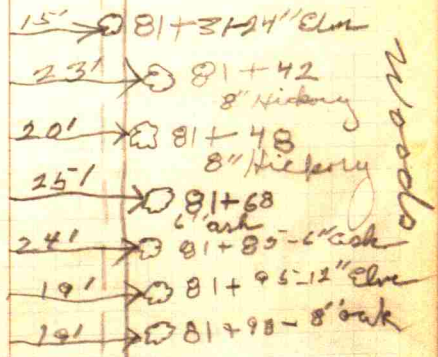 15' 81+31-24" Elm
23' 81+42
8" Hickory
20' 81+48
8" Hickory
25' 81+68
6" ash
24' 81+85-6" ash
19' 81+95-12" Elm
19' 81+98-8" oak
Woods